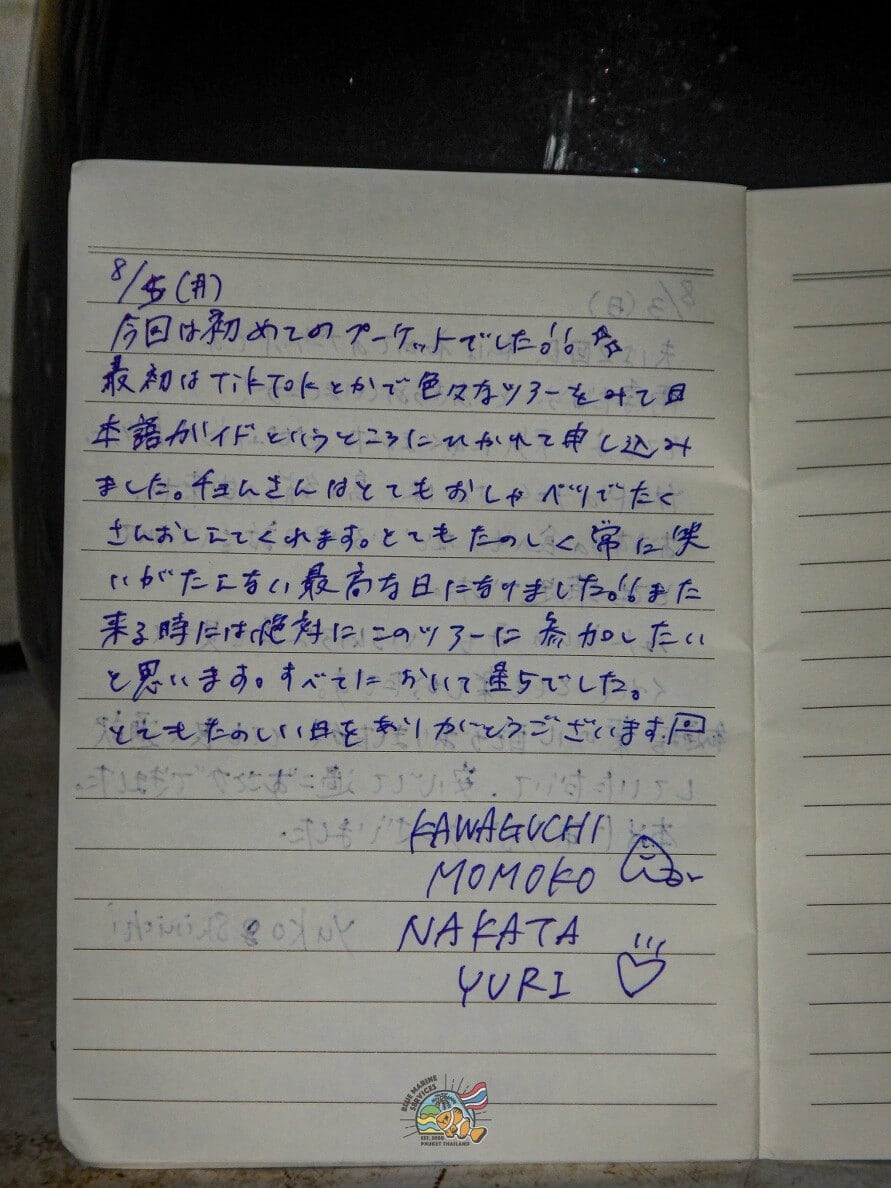 8/5(月)
今回は初めてのプーケットでした!!
最初はTikTokとかで色々なツアーをみて日
本語ガイドというところにひかれて申し込み
ました。チュんさんはとてもおしゃべりでたく
さんおしえてくれます。とてもたのしく常に笑
いがたえない最高な日になりました!!また
来る時には絶対にこのツアーに参加したい
と思います。すべてにおいて星5でした。
とてもたのしい日をありがとうございます
KAWAGUCHI
MOMOKO
NAKATA
YURI
BLUE MARINE
SERVICES
EST. 2000
PHUKET THAILAND
8/3(日)
Yuko & Shinichi